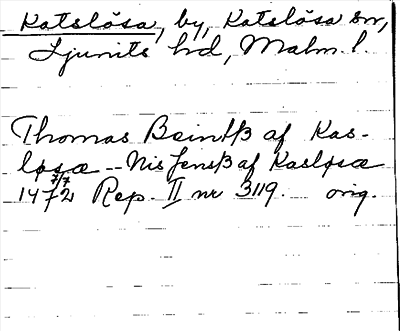 Katslösa, by, Katslösa sn,
Ljunits hd, Malm. l.
Thomas Beintß af Kas-
løsæ -- Nis Jensß af Kasløsæ
14 7/7 72 Rep. II nr 3119. orig.